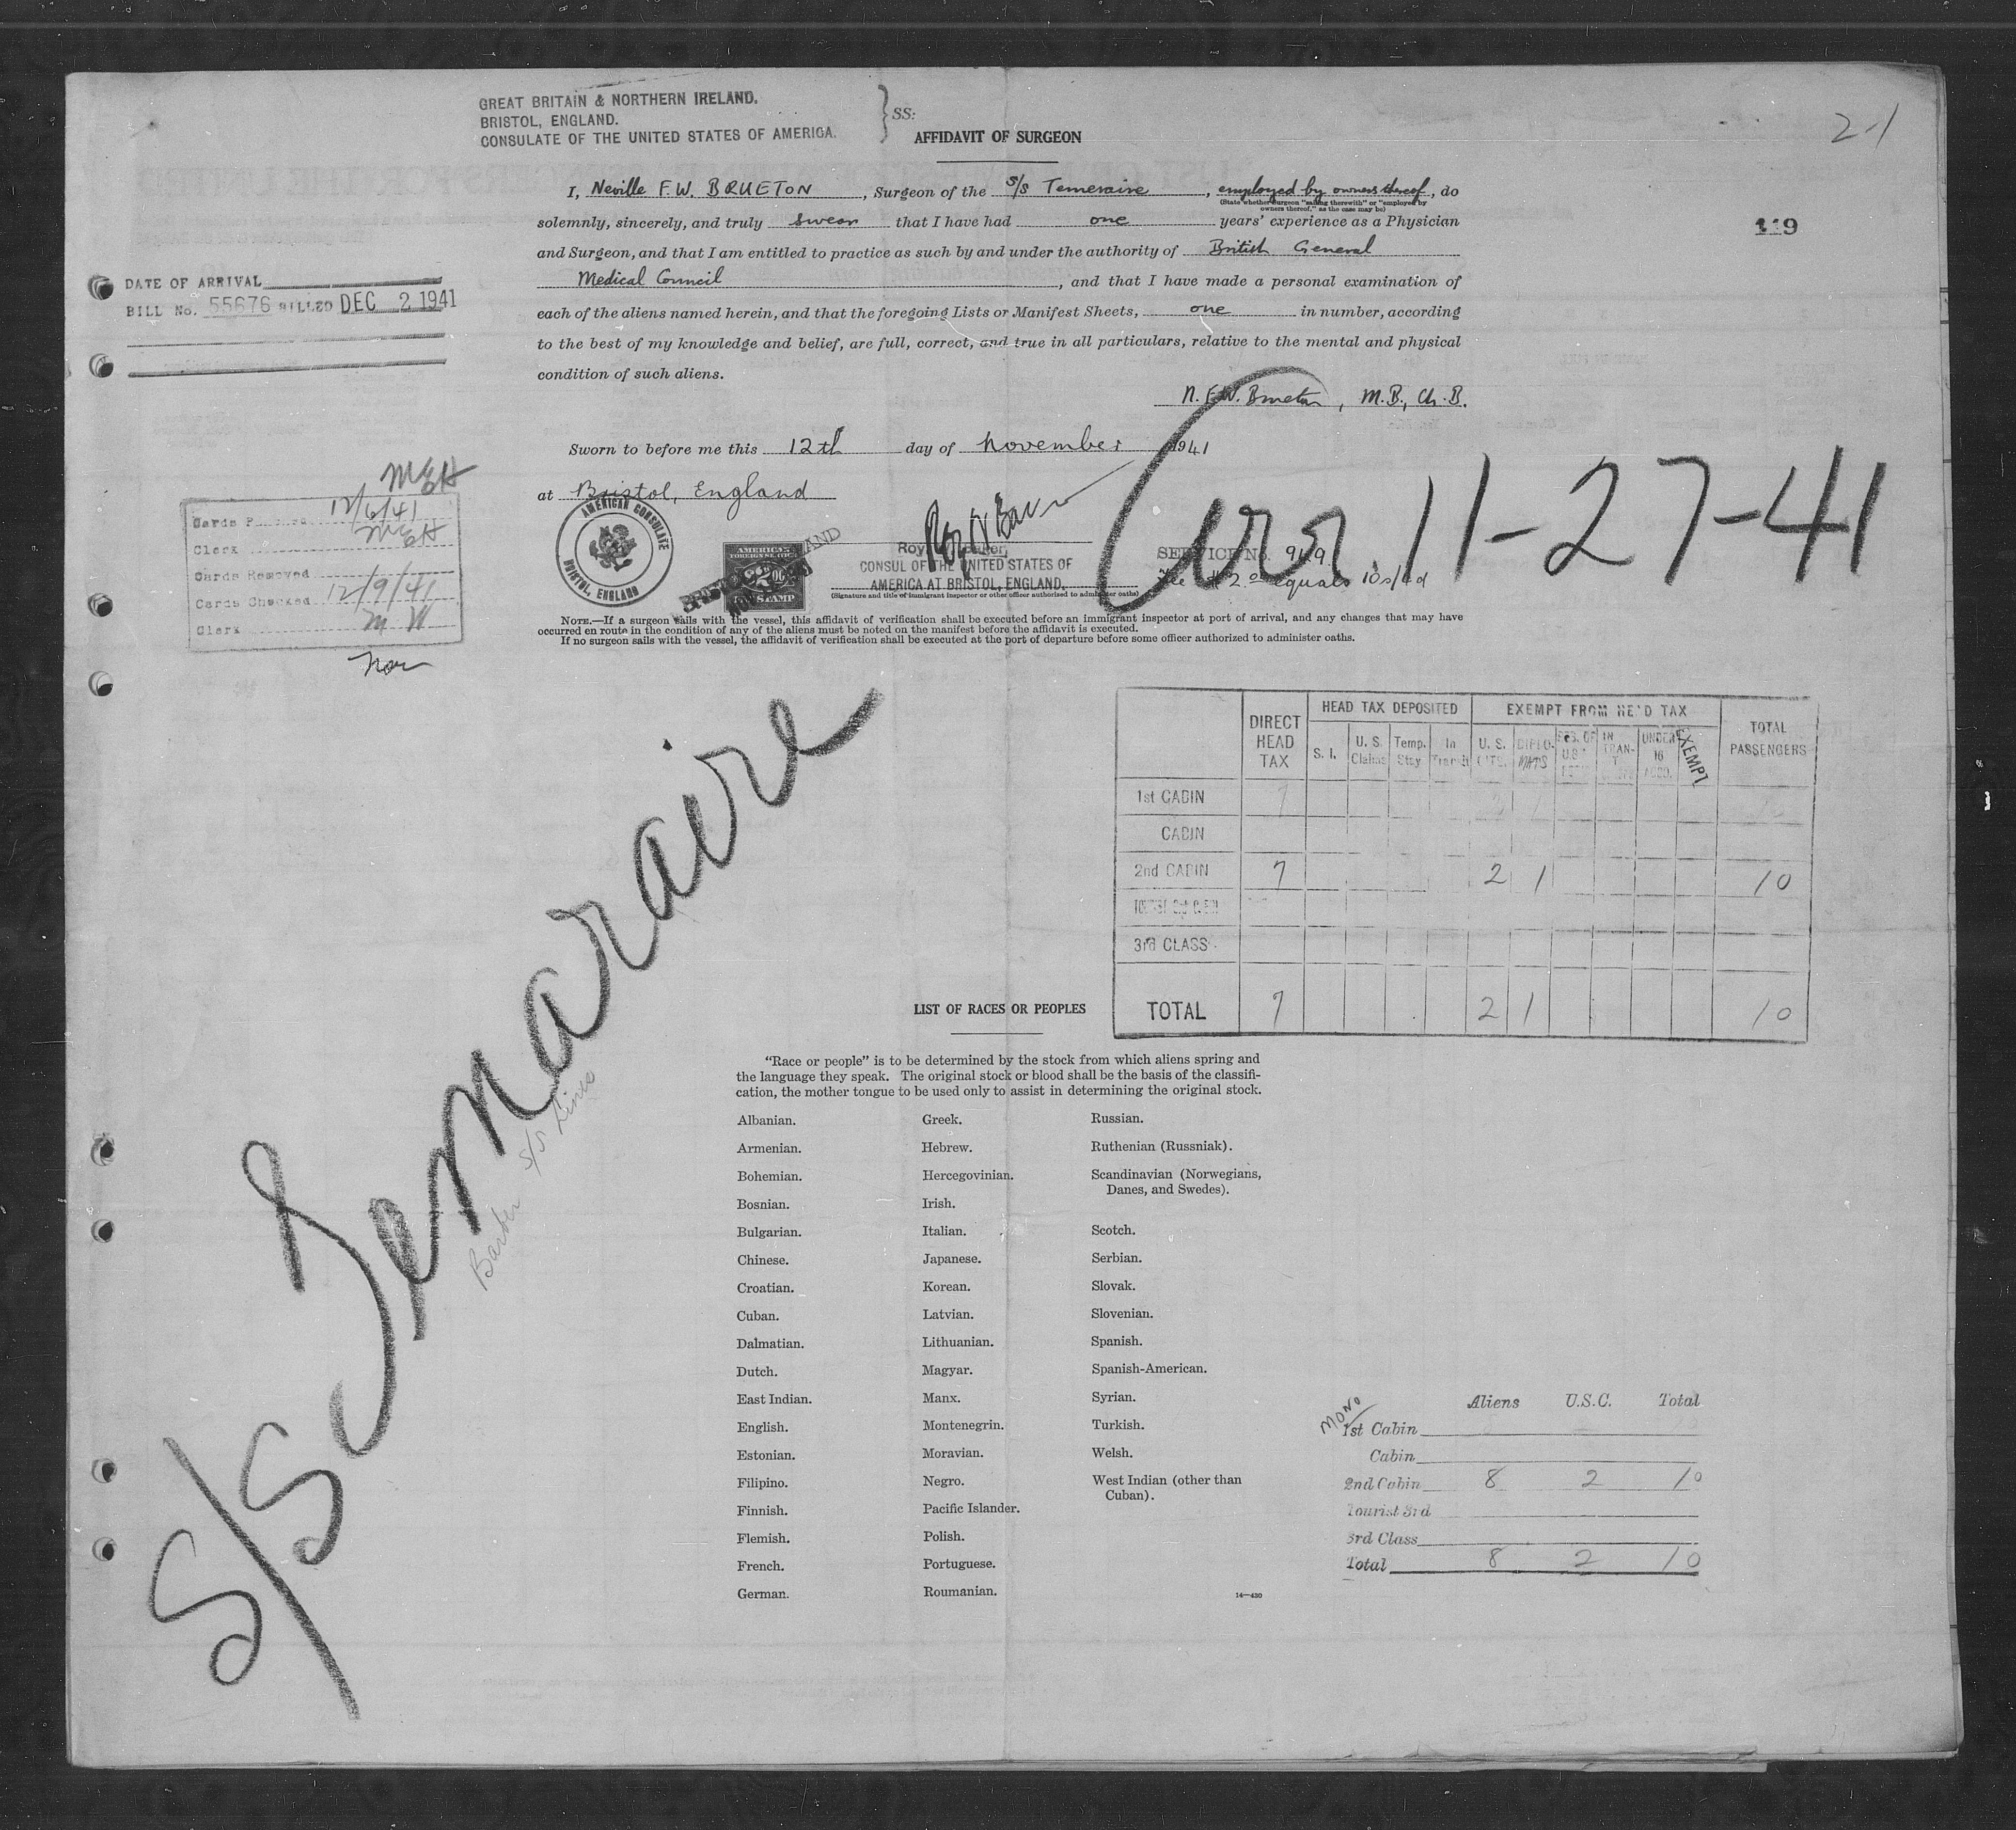 GREAT BRITAIN & NORTHERN IRELAND.
BRISTOL, ENGLAND.
CONSULATE OF THE UNITED STATES OF AMERICA.
SS:
AFFIDAVIT OF SURGEON
2-1
119
I, Neville F.W. BRUETON, Surgeon of the S/s Temeraire, employed by owners thereof, do
(State whether surgeon "sailing therewith" or "employed by
owners thereof," as the case may be)
solemnly, sincerely, and truly swear that I have had one years' experience as a Physician
and Surgeon, and that I am entitled to practice as such by and under the authority of British General
Medical Council, and that I have made a personal examination of
each of the aliens named herein, and that the foregoing Lists or Manifest Sheets, one in number, according
to the best of my knowledge and belief, are full, correct, and true in all particulars, relative to the mental and physical
condition of such aliens.
N.F.W. Brueton, M.B., Ch.B.
Sworn to before me this 12th day of November 1941
at Bristol, England
DATE OF ARRIVAL
BILL No. 55676 BILLED DEC 2 1941
MEH
12/6/41
Clerk MEH
Cards Removed
Cards Checked 12/9/41
Clerk M W
AMERICAN CONSULATE
BRISTOL, ENGLAND
AMERICAN
FOREIGN SERVICE
CONSUL OF THE UNITED STATES OF
AMERICA AT BRISTOL, ENGLAND.
(Signature and title of immigrant inspector or other officer authorized to administer oaths)
SERVICE No.
Fee $2.00 equals 10s/4d
Arr. 11-27-41
NOTE.—If a surgeon sails with the vessel, this affidavit of verification shall be executed before an immigrant inspector at port of arrival, and any changes that may have
occurred en route in the condition of any of the aliens must be noted on the manifest before the affidavit is executed.
If no surgeon sails with the vessel, the affidavit of verification shall be executed at the port of departure before some officer authorized to administer oaths.
Nor
S/S Temeraire
Barber S/S Lines
DIRECT HEAD TAX
HEAD TAX DEPOSITED
EXEMPT FROM HEAD TAX
TOTAL PASSENGERS
S. I. U. S. Claims Temp. Stay In Transit U. S. CITS. DIPLOMATS IN TRAN- UNDER 16 EXEMPT
1st CABIN
CABIN
2nd CABIN 7 2 1 10
3rd CLASS
TOTAL 7 2 1 10
LIST OF RACES OR PEOPLES
"Race or people" is to be determined by the stock from which aliens spring and
the language they speak. The original stock or blood shall be the basis of the classifi-
cation, the mother tongue to be used only to assist in determining the original stock.
Albanian.
Armenian.
Bohemian.
Bosnian.
Bulgarian.
Chinese.
Croatian.
Cuban.
Dalmatian.
Dutch.
East Indian.
English.
Estonian.
Filipino.
Finnish.
Flemish.
French.
German.
Greek.
Hebrew.
Hercegovinian.
Irish.
Italian.
Japanese.
Korean.
Latvian.
Lithuanian.
Magyar.
Manx.
Montenegrin.
Moravian.
Negro.
Pacific Islander.
Polish.
Portuguese.
Roumanian.
Russian.
Ruthenian (Russniak).
Scandinavian (Norwegians,
Danes, and Swedes).
Scotch.
Serbian.
Slovak.
Slovenian.
Spanish.
Spanish-American.
Syrian.
Turkish.
Welsh.
West Indian (other than
Cuban).
14—430
Aliens U.S.C. Total
MONO
1st Cabin
Cabin
2nd Cabin 8 2 10
Tourist 3rd
3rd Class
Total 8 2 10